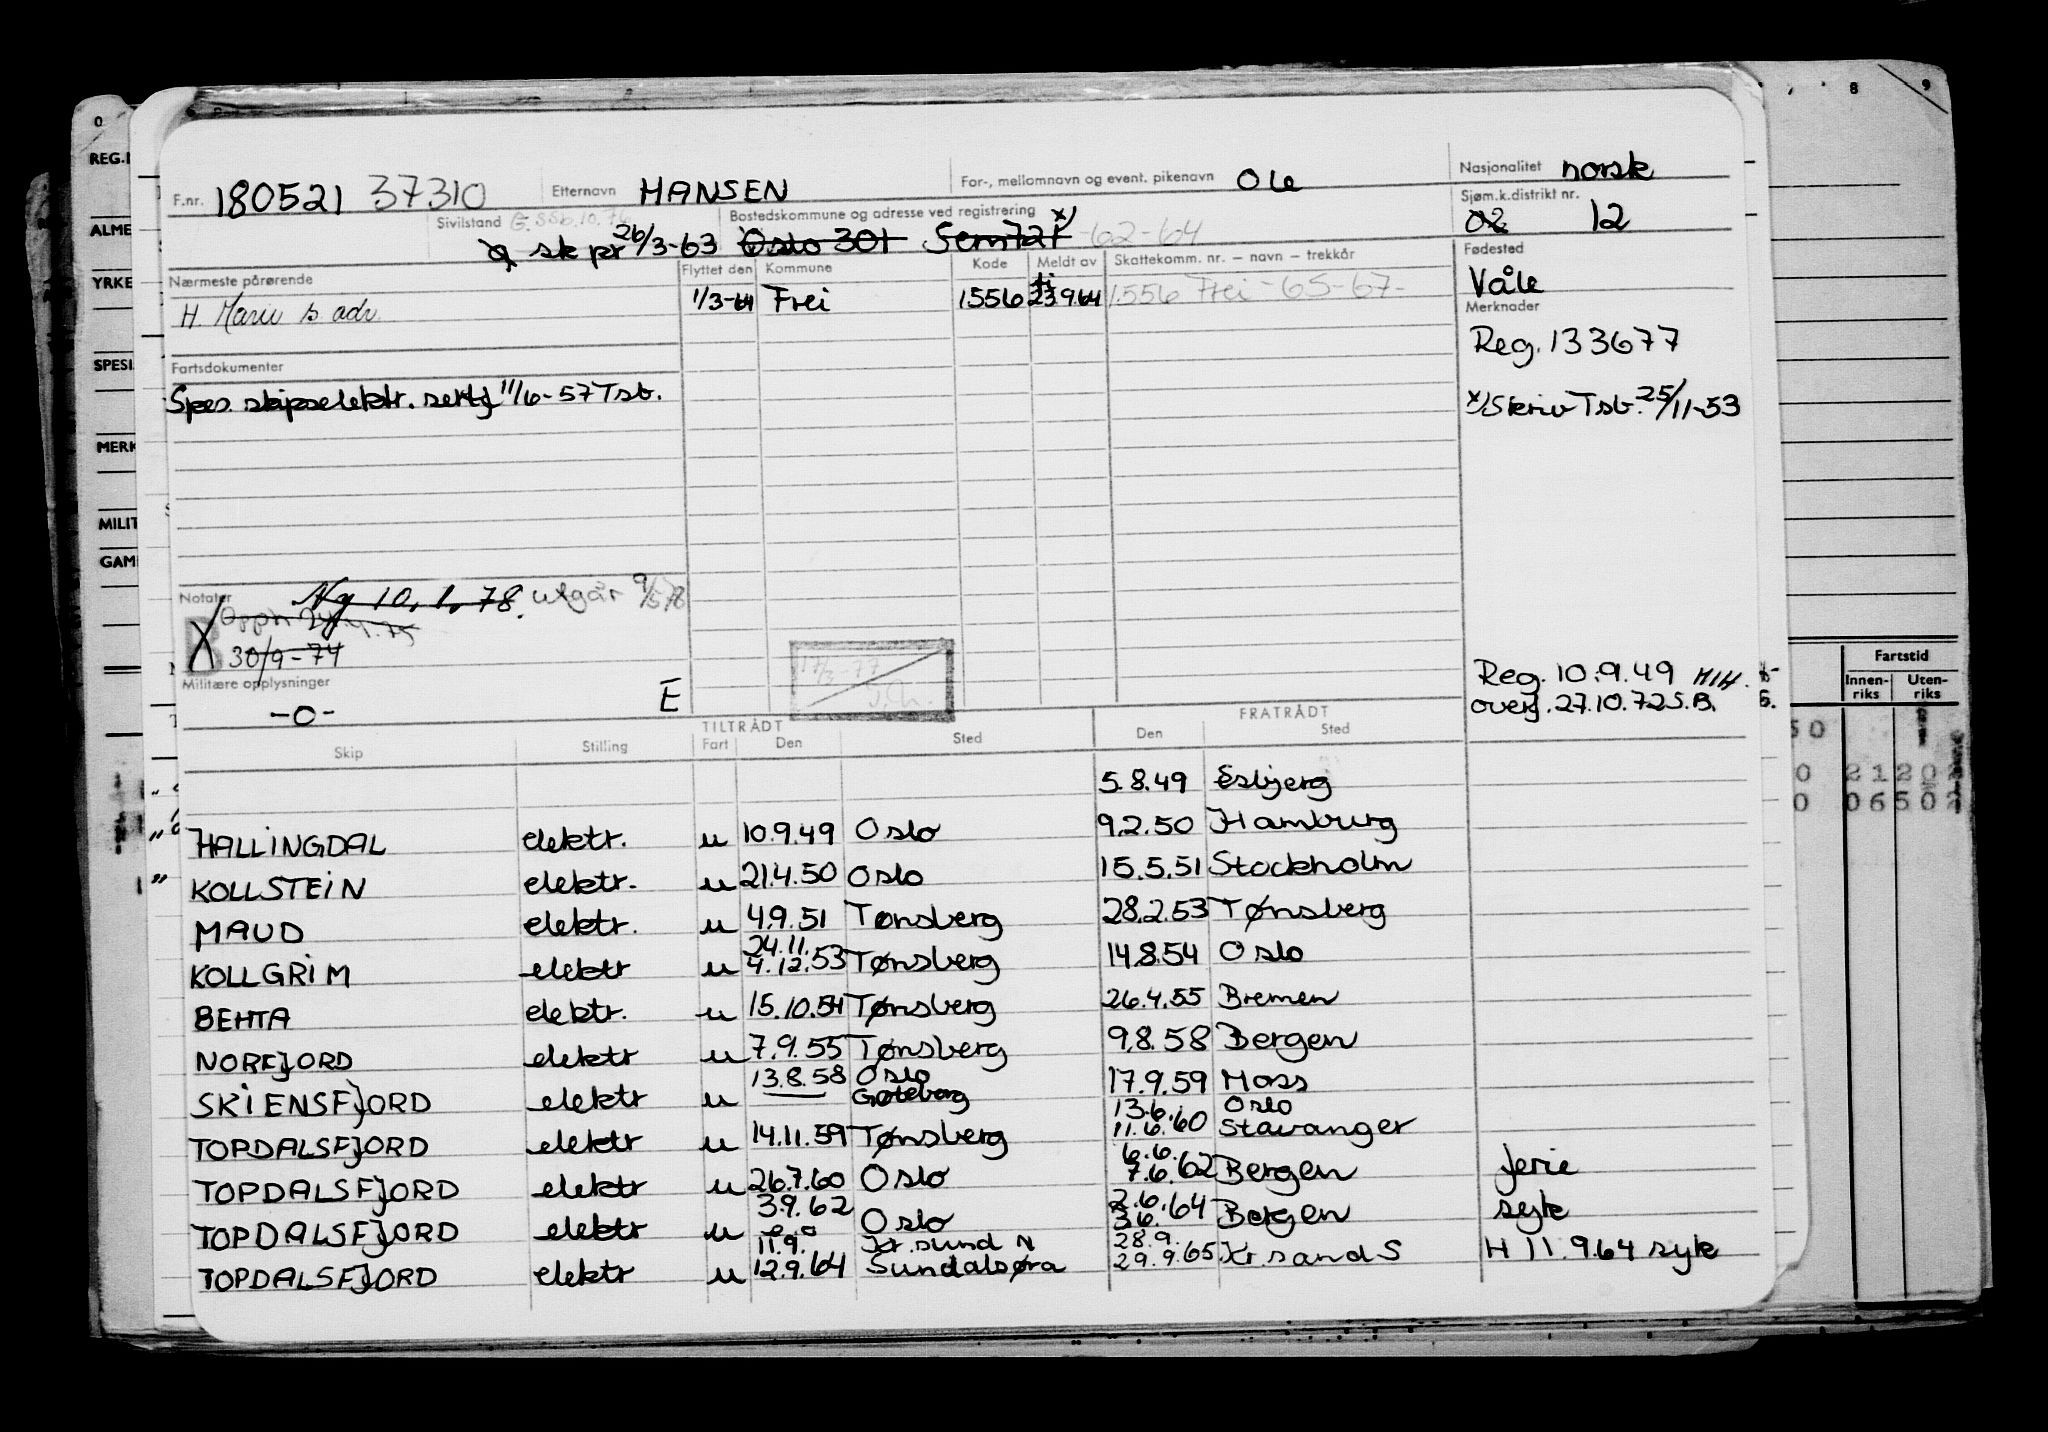 F.nr. 180521 37310 Etternavn HANSEN For-, mellomnavn og event. pikenavn Ole Nasjonalitet norsk
Sivilstand G. SSb. 10.76 Bostedskommune og adresse ved registrering Sjøm.k.distrikt nr.
sk pr 26/3-63 Oslo 301 Sem 721 x) -62-64 02 12
Nærmeste pårørende Flyttet den Kommune Kode Meldt av Skattekomm. nr. – navn – trekkår Fødested
H. Marie s adr. 1/3-64 Frei 1556 23964 1556 Frei -65-67- Våle
Merknader
Reg. 133677
Fartsdokumenter
Spes. skipselektr. sertf 11/6-57 Tsb. x) Skriv Tsb. 25/11-53
Notater Ny 10.1.78. utgår 9/5 78
B
30/9-74
17/3-77
Militære opplysninger
-0- E
Reg. 10.9.49 HIH.
overf. 27.10.72 S.B.
TILTRÅDT FRATRÅDT
Skip Stilling Fart Den Sted Den Sted
5.8.49 Esbjerg
HALLINGDAL elektr. u 10.9.49 Oslo 9.2.50 Hamburg
KOLLSTEIN elektr. u 21.4.50 Oslo 15.5.51 Stockholm
MAUD elektr. u 4.9.51 Tønsberg 28.2.53 Tønsberg
KOLLGRIM elektr u 24.11. 4.12.53 Tønsberg 14.8.54 Oslo
BEHTA elektr. u 15.10.54 Tønsberg 26.4.55 Bremen
NORFJORD elektr u 7.9.55 Tønsberg 9.8.58 Bergen
SKIENSFJORD elektr u 13.8.58 Oslo Gøteborg 17.9.59 Moss
TOPDALSFJORD elektr u 14.11.59 Tønsberg 13.6. 11.6.60 Oslo Stavanger
TOPDALSFJORD elektr u 26.7.60 Oslo 6.6. 7.6.62 Bergen ferie
TOPDALSFJORD elektr u 3.9.62 Oslo 2.6.64 3.6. Bergen syk
TOPDALSFJORD elektr u 11.9. 12.9.64 Kr.sund N Sundalsøra 28.9. 29.9.65 Kr sand S H 11.9.64 syk
0
REG.
ALME
YRKE
SPESI
MERK
MILIT
GAM
8 9
Fartstid
Innen-riks Uten-riks
50
0 21 20
0 06 50